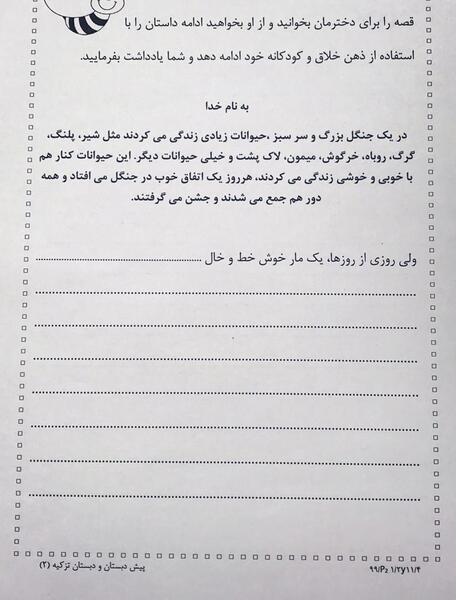 قصه را برای دخترمان بخوانید و از او بخواهید ادامه داستان را با
استفاده از ذهن خلاق و کودکانه خود ادامه دهد و شما یادداشت بفرمایید.
به نام خدا
در یک جنگل بزرگ و سر سبز ،حیوانات زیادی زندگی می کردند مثل شیر، پلنگ،
گرگ، روباه، خرگوش، میمون، لاک پشت و خیلی حیوانات دیگر. این حیوانات کنار هم
با خوبی و خوشی زندگی می کردند، هرروز یک اتفاق خوب در جنگل می افتاد و همه
دور هم جمع می شدند و جشن می گرفتند.
ولی روزی از روزها، یک مار خوش خط و خال ..................................................
۹۹/P₂ ۱/۲y۱۱/۴ پیش دبستان و دبستان تزکیه (۲)